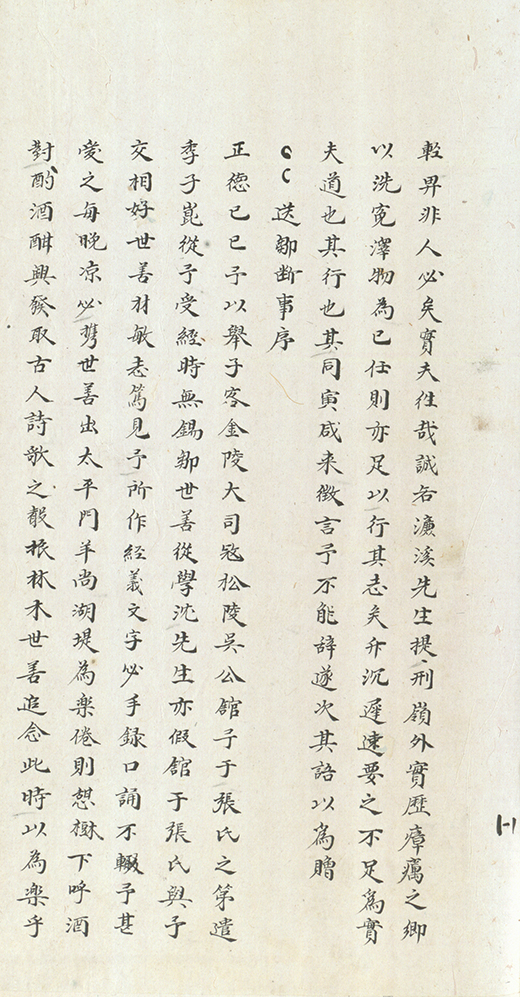 軽畀非人必矣實夫徃哉誠若濂溪先生提刑嶺外實歴瘴癘之鄉
以洗寃澤物為已任則亦足以行其志矣升沉遲速要之不足為實
夫道也其行也其同寅咸来徴言予不能辞遂次其語以為贈
送鄒断事序
正徳己巳予以舉子客金陵大司冦松陵吳公舘予于張氏之第遣
季子崑從予受經時無錫鄒世善從學沈先生亦假舘于張氏與予
交相好世善材敏志篤見予所作經義文字必手録口誦不輟予甚
愛之每晚凉必㩗世善出太平門羊尚湖堤為樂倦則憇樹下呼酒
對酌酒酣興發取古人詩歌之聲振林木世善追念此時以為樂乎